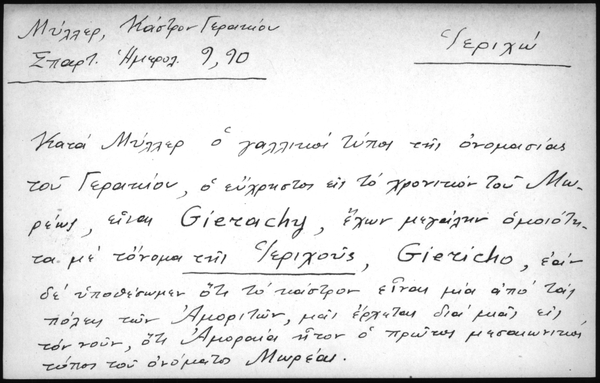 Μύλλερ, Κάστρον Γερακίου
Σπαρτ. Ἡμερολ. 9, 90
Ἱεριχώ
Κατά Μύλλερ ὁ γαλλικός τύπος τῆς ὀνομασίας
τοῦ Γερακίου, ὁ εὔχρηστος εἰς τό χρονικόν τοῦ Μω-
ρέως, εἶναι Gierachy, ἔχων μεγάλην ὁμοιότη-
τα μέ τὄνομα τῆς Ἱεριχοῦς, Giericho, ἐάν
δέ ὑποθέσωμεν ὅτι τό κάστρον εἶναι μία ἀπό τάς
πόλεις τῶν Ἀμοριτῶν, μᾶς ἔρχεται διά μιᾶς εἰς
τόν νοῦν, ὅτι Ἀμοραία ἦτον ὁ πρῶτος μεσαιωνικός
τύπος τοῦ ὀνόματος Μωρέας.